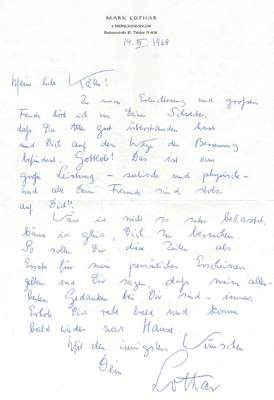 MARK LOTHAR
14. III 1968
Meine liebe Käthe!
Zu meiner Erleichterung und großen
Freude hört ich von Deiner Schwester,
daß Du Alles gut überstanden hast
und Dich auf dem Wege der Besserung
befindest. Gottlob! Das ist eine
große Leistung – seelisch und physisch –
und alle Deine Freunde sind stolz
auf Dich!!
Wäre ich nicht so sehr belastet,
käme ich gleich, Dich zu besuchen.
So sollen Dir diese Zeilen als
Ersatz für mein persönliches Erscheinen
gelten und Dir sagen, daß meine aller-
besten Gedanken bei Dir sind – immer.
Erhole Dich recht bald und komme
bald wieder nach Hause.
Mit den innigsten Wünschen
Dein
Lothar